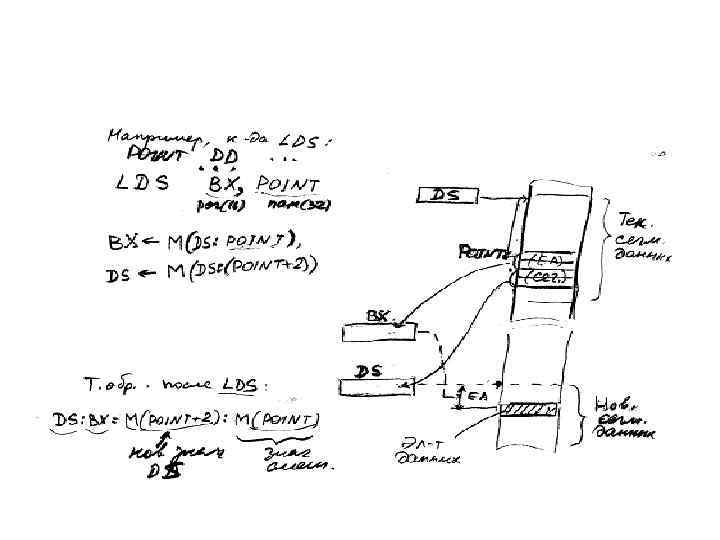 Например, к-да LDS:
POINT DD ...
LDS BX, POINT
рег(16) пам(32)
BX ← M(DS: POINT),
DS ← M(DS:(POINT+2))
Т.обр. после LDS:
DS:BX = M(POINT+2): M(POINT)
нов знач
DS
знач
смещ.
DS
POINT
(EA)
(сег.)
Тек.
сегм.
данных
BX
DS
EA
Эл-т
данных
Нов.
сегм.
данных